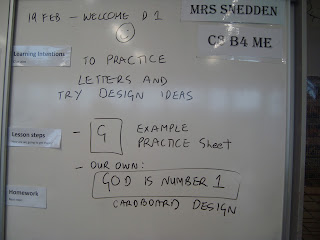 19 FEB - WELCOME D1
MRS SNEDDEN
CS B4 ME
Learning Intentions
TO PRACTICE
LETTERS AND
TRY DESIGN IDEAS
Lesson steps
- G EXAMPLE
PRACTICE Sheet
- OUR OWN:
GOD IS NUMBER 1
CARDBOARD DESIGN
Homework